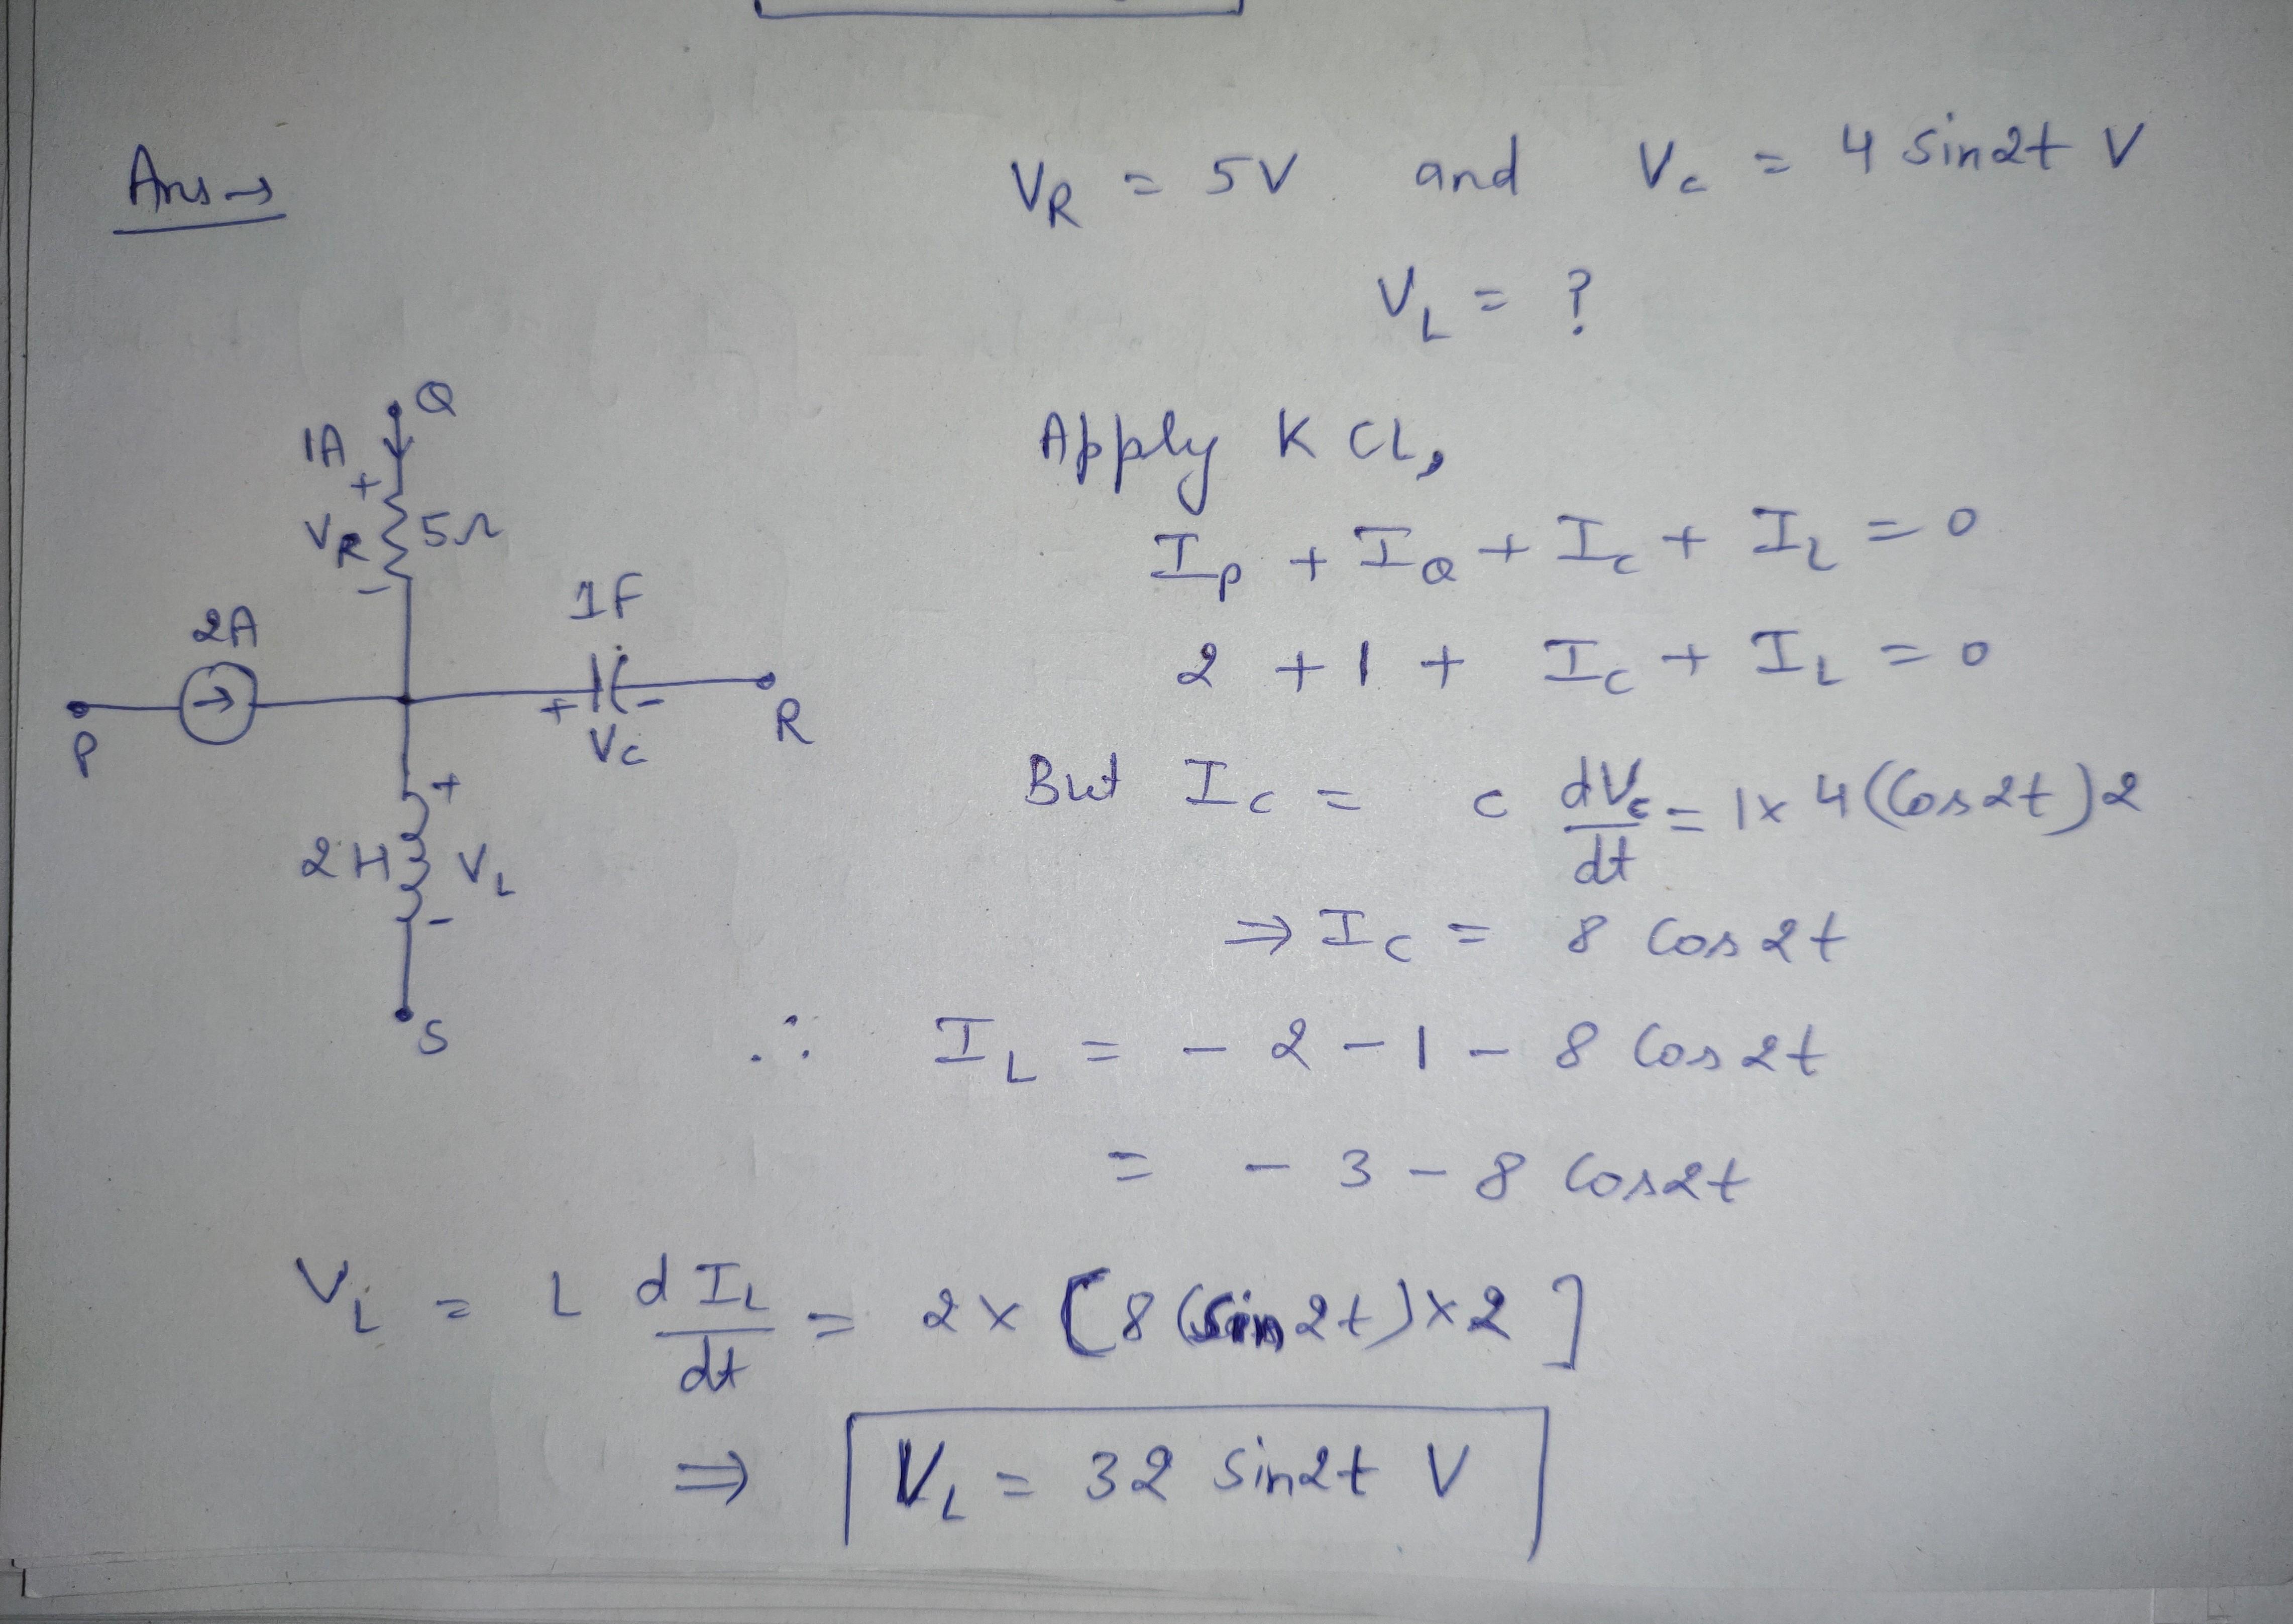 Ans →
V_R = 5V and V_c = 4 sin2t V
V_L = ?
Q
1A
+
V_R 5Ω
-
2A
1F
P
+ -
V_c
R
+
2H V_L
-
S
Apply KCL,
I_p + I_Q + I_c + I_L = 0
2 + 1 + I_c + I_L = 0
But I_c = c dV_c/dt = 1 x 4 (Cos2t)2
⇒ I_c = 8 Cos2t
∴ I_L = - 2 - 1 - 8 Cos2t
= - 3 - 8 Cos2t
V_L = L dI_L/dt = 2 x [8 (Sin2t) x 2]
⇒ V_L = 32 Sin2t V